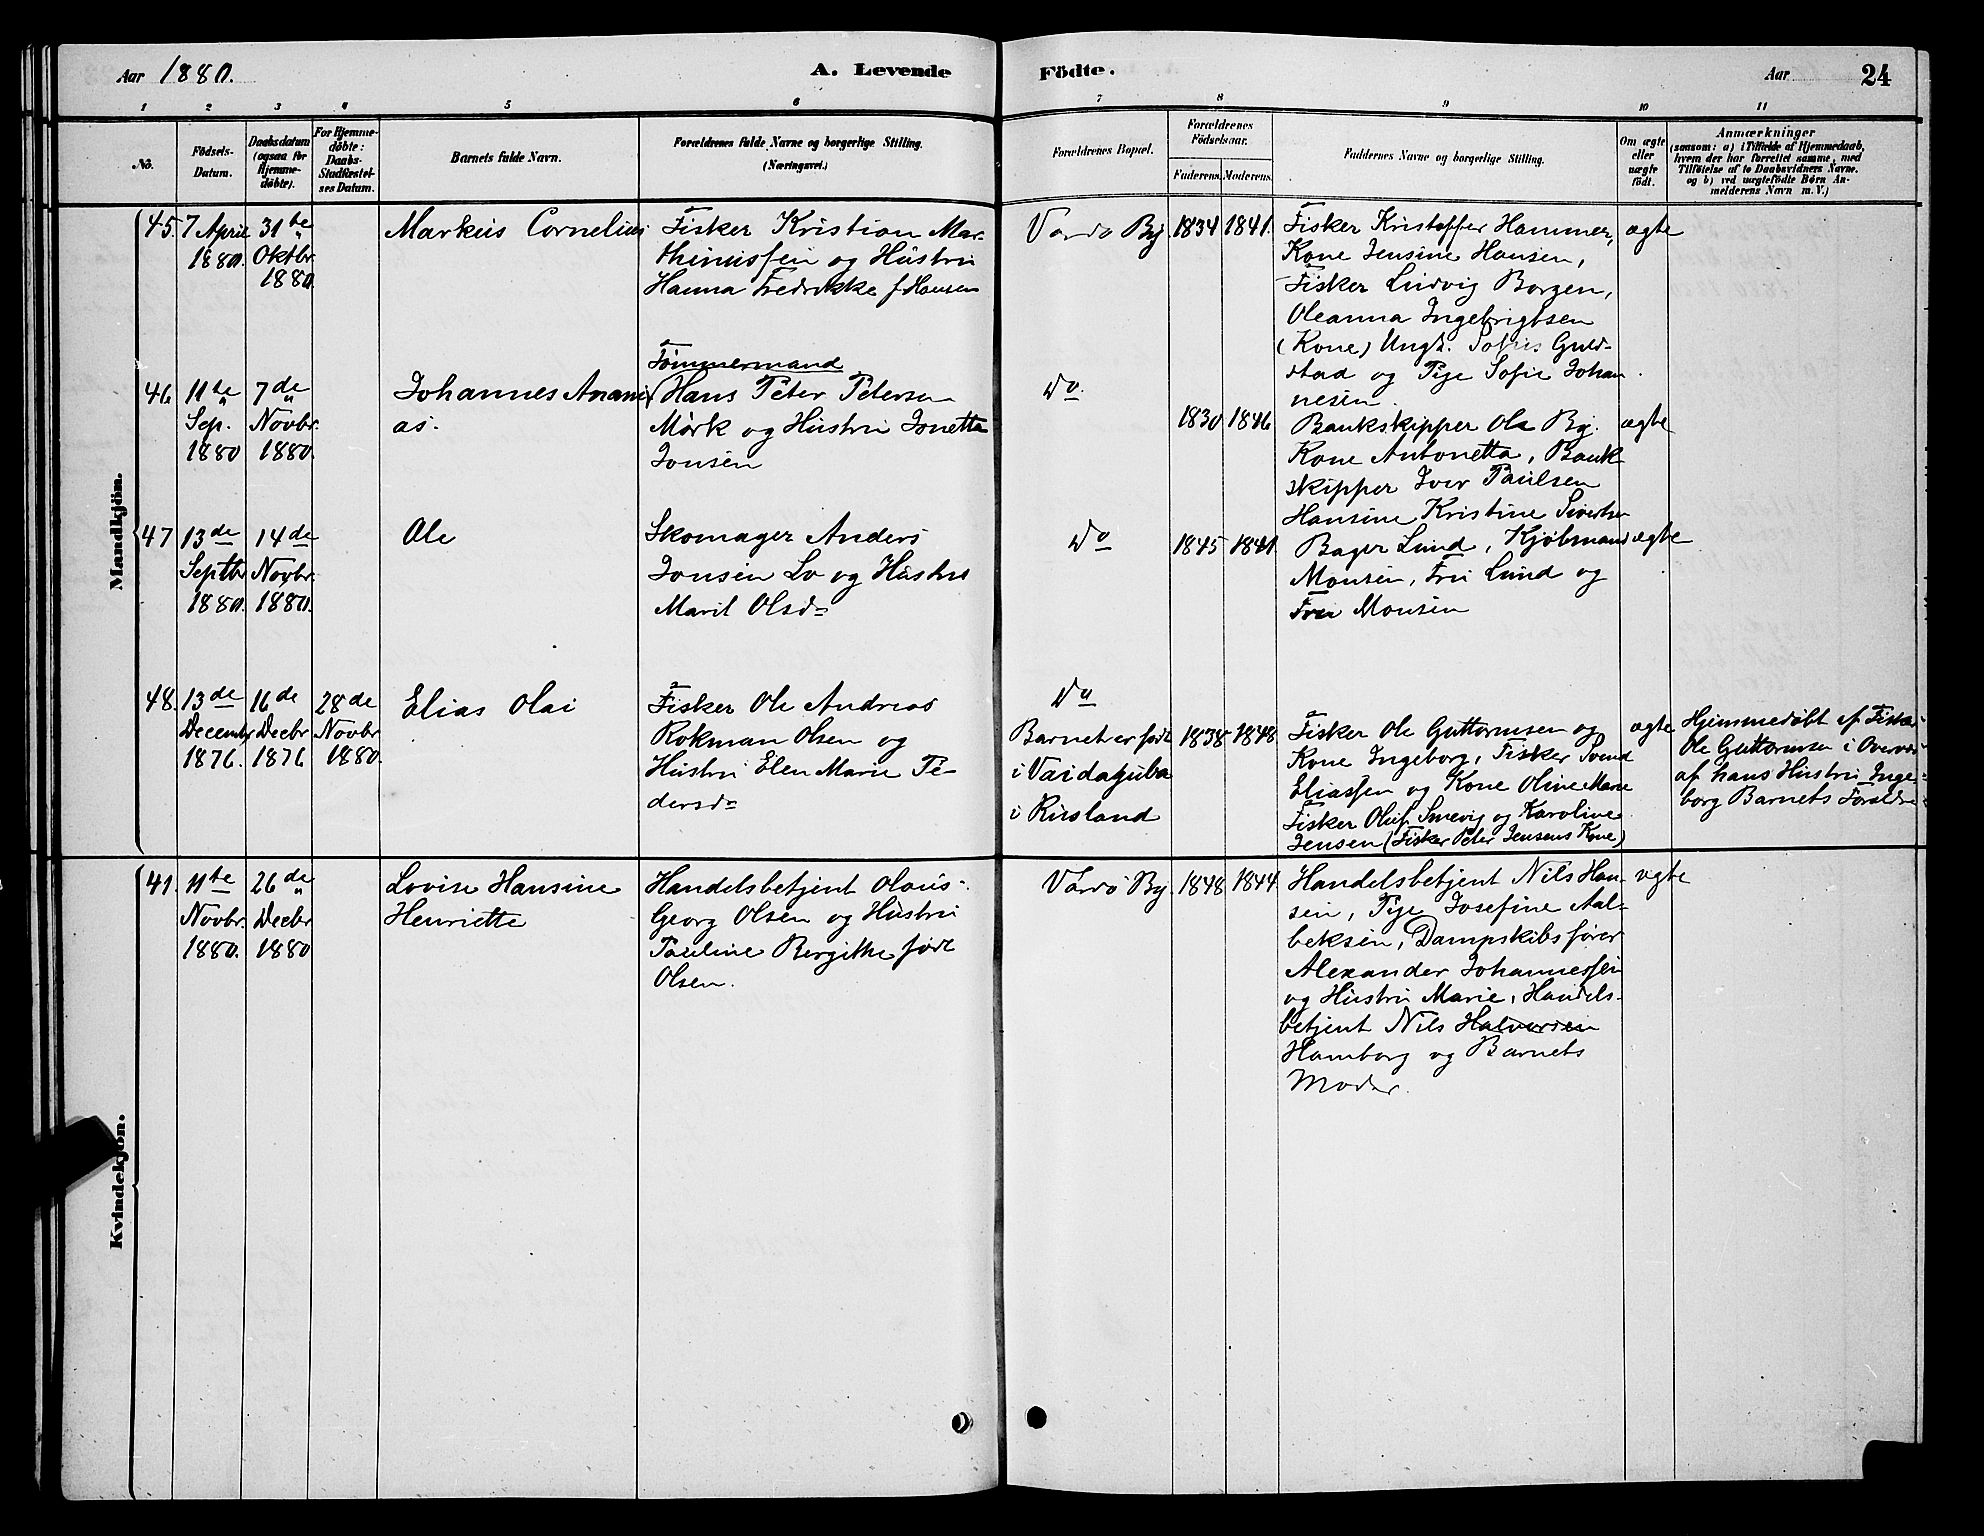 Aar 1880.
A. Levende Födte.
Aar
24
1 2 3 4 5 6 7 8 9 10 11
No.
Födsels-
Datum.
Daabsdatum
(ogsaa for
Hjemme-
døbte).
For Hjemme-
døbte:
Daabs-
Stadfæstel-
ses Datum.
Barnets fulde Navn.
Forældrenes fulde Navne og borgerlige Stilling.
(Næringsvei.)
Forældrenes Bopæl.
Forældrenes
Födselsaar.
Faderens. Moderens.
Faddernes Navne og borgerlige Stilling.
Om ægte
eller
uægte
født.
Anmærkninger
(saasom: a) i Tilfælde af Hjemmedaab,
hvem der har forrettet samme, med
Tilføielse af to Daabsvidners Navne.
og b) ved uægtefødte Børn An-
melderens Navn m. V.)
Mandkjön.
45. 7 April
1880.
31te
Oktbr.
1880
Markus Cornelius
Fisker Kristian Mar-
thinussen og Hustru
Hanna Fredrikke f. Hansen
Vardø By. 1834 1841.
Fisker Kristoffer Hammer,
Kone Jensine Hansen,
Fisker Ludvig Borgen,
Oleanna Ingebrigtsen
(Kone) Ungk. Guld-
stad og Pige Sofie Johan-
nesen.
ægte
46 11te
Sep.
1880
7de
Novbr.
1880.
Johannes Anani-
as.
Tømmermand
Hans Peter Petersen
Mörk og Hustru Jonetta
Jonsen
Do
1830 1846
Bankskipper Ole By.
Kone Antonetta, Bank-
skipper Iver Paulsen
Hansine Kristine Sivertsen
ægte
47 13de
Septbr
1880.
14de
Novbr.
1880.
Ole
Skomager Anders
Jonsen Lo og Hustru
Marit Olsd=
Do
1845 1841.
Bager Lund, Kjøbmand
Monsen, Fru Lund og
Fru Monsen
ægte
48. 13de
Decembr
1876.
16de
Decbr
1876
28de
Novbr
1880.
Elias Olai
Fisker Ole Andreas
Rokman Olsen og
Hustru Elen Marie Pe-
dersd=
Do
Barnet er født
i Vaidaguba
i Rusland
1838 1848
Fisker Ole Guttormsen og
Kone Ingeborg, Fisker
Eliassen og Kone Oline Marie
Fisker Oluf Smevig og Karoline
Jensen (Fisker Peter Jensens Kone)
ægte
Hjemmedøbt af Fisker
Ole Guttormsen i Overvær
af hans Hustru Inge-
borg Barnets Forældre
Kvindekjön.
41. 11te
Novbr.
1880.
26de
Decbr
1880
Lovise Hansine
Henriette
Handelsbetjent Olaus
Georg Olsen og Hustru
Pauline Bergithe født
Olsen.
Vardö By. 1848 1844
Handelsbetjent Nils Han-
sen, Pige Josefine Aal-
beksen, Dampskibsfører
Alexander Johannessen
og Hustru Marie, Handels-
betjent Nils Halvorsen
Hamborg og Barnets
Moder.
ægte